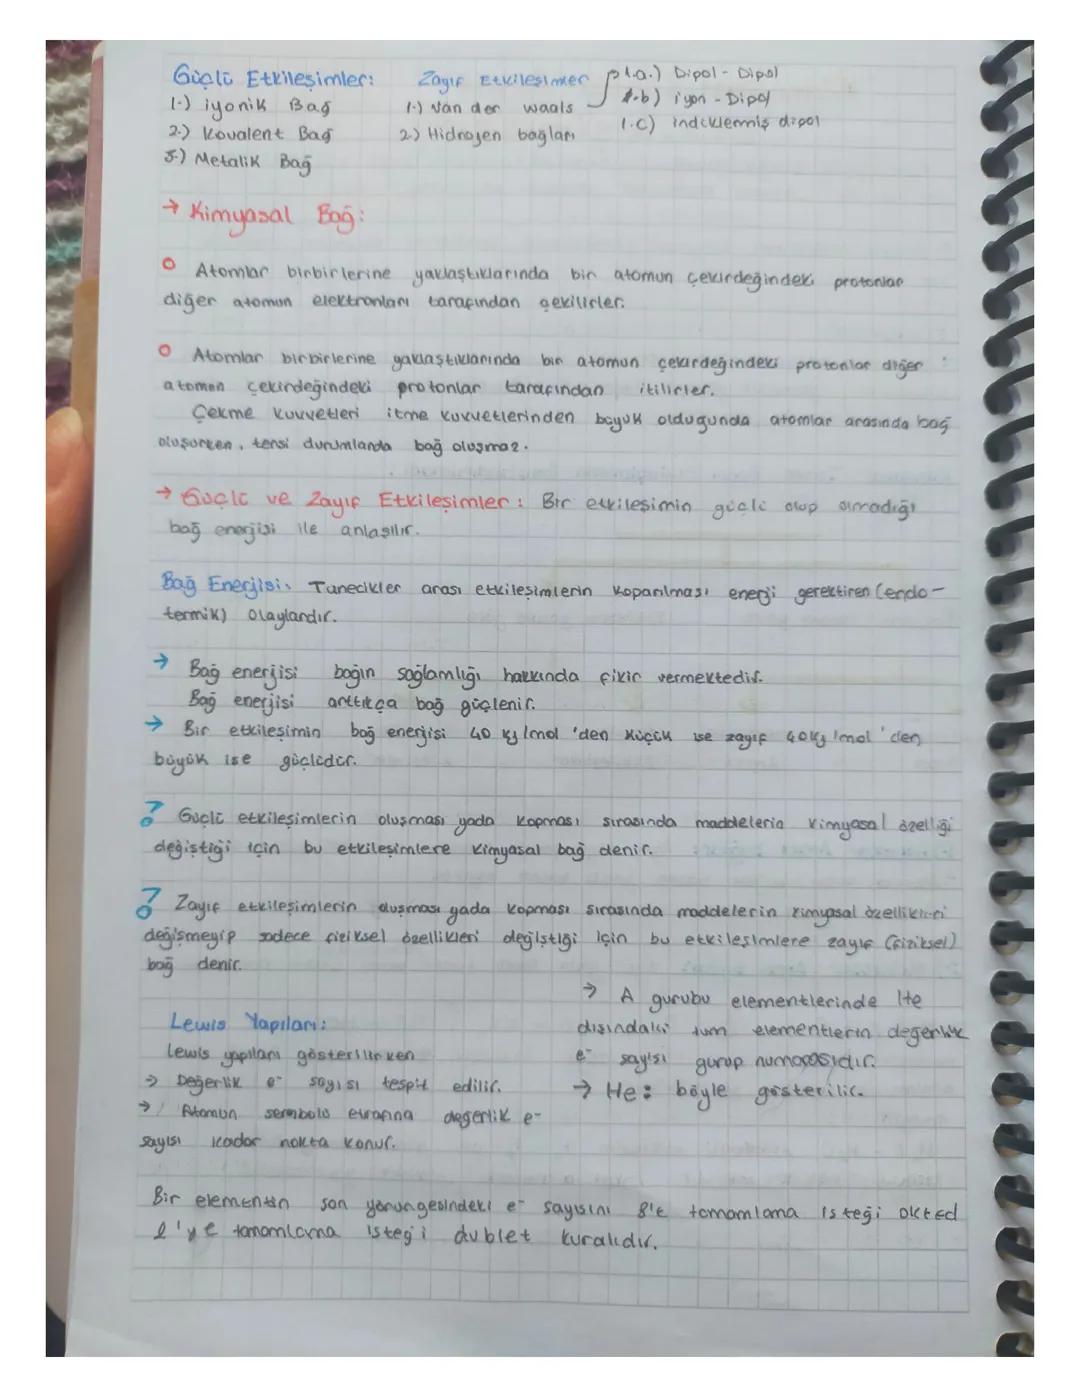 Güçlü Etkileşimler:
1-) iyonik Bağ
2-) Kovalent Bağ
3-) Metalik Bağ
Zayıf Etkileşimler
1-) Van der waals
2-) Hidrojen bağları
1.a.) Dipol - Dipol
1.b) iyon - Dipol
1.c) indüklenmiş dipol
→ Kimyasal Bağ:
Atomlar birbirlerine yaklaştıklarında bir atomun çekirdeğindeki protonlar
diğer atomun elektronları tarafından çekilirler.
Atomlar birbirlerine yaklaştıklarında bir atomun çekirdeğindeki protonlar diğer
atomun çekirdeğindeki protonlar tarafından itilirler.
Çekme kuvvetleri itme kuvvetlerinden büyük olduğunda atomlar arasında bağ
oluşurken, tersi durumlarda bağ oluşmaz.
→ Güçlü ve Zayıf Etkileşimler: Bir etkileşimin güçlü olup olmadığı
bağ enerjisi ile anlaşılır.
Bağ Enerjisi: Tanecikler arası etkileşimlerin koparılması enerji gerektiren (endo-
termik) olaylardır.
→ Bağ enerjisi bağın sağlamlığı hakkında fikir vermektedir.
Bağ enerjisi arttıkça bağ güçlenir.
→ Bir etkileşimin bağ enerjisi 40 kj/mol'den küçük ise zayıf 40kj/mol'den
büyük ise güçlüdür.
? Güçlü etkileşimlerin oluşması yada kopması sırasında maddelerin kimyasal özelliği
değiştiği için bu etkileşimlere kimyasal bağ denir.
? Zayıf etkileşimlerin oluşması yada kopması sırasında maddelerin kimyasal özellikleri
değişmeyip sadece fiziksel özellikleri değiştiği için bu etkileşimlere zayıf (fiziksel)
bağ denir.
Lewis Yapıları:
Lewis yapıları gösterilirken
→ Değerlik e⁻ sayısı tespit edilir.
→ Atomun sembolü etrafına değerlik e-
sayısı kadar nokta konur.
→ A gurubu elementlerinde He
dışındaki tüm elementlerin değerlik
e⁻ sayısı gurup numarasıdır.
→ He: böyle gösterilir.
Bir elementin son yörüngesindeki e⁻ sayısını 8'e tamamlama isteği okted
2'ye tamamlama isteği dublet kuralıdır.